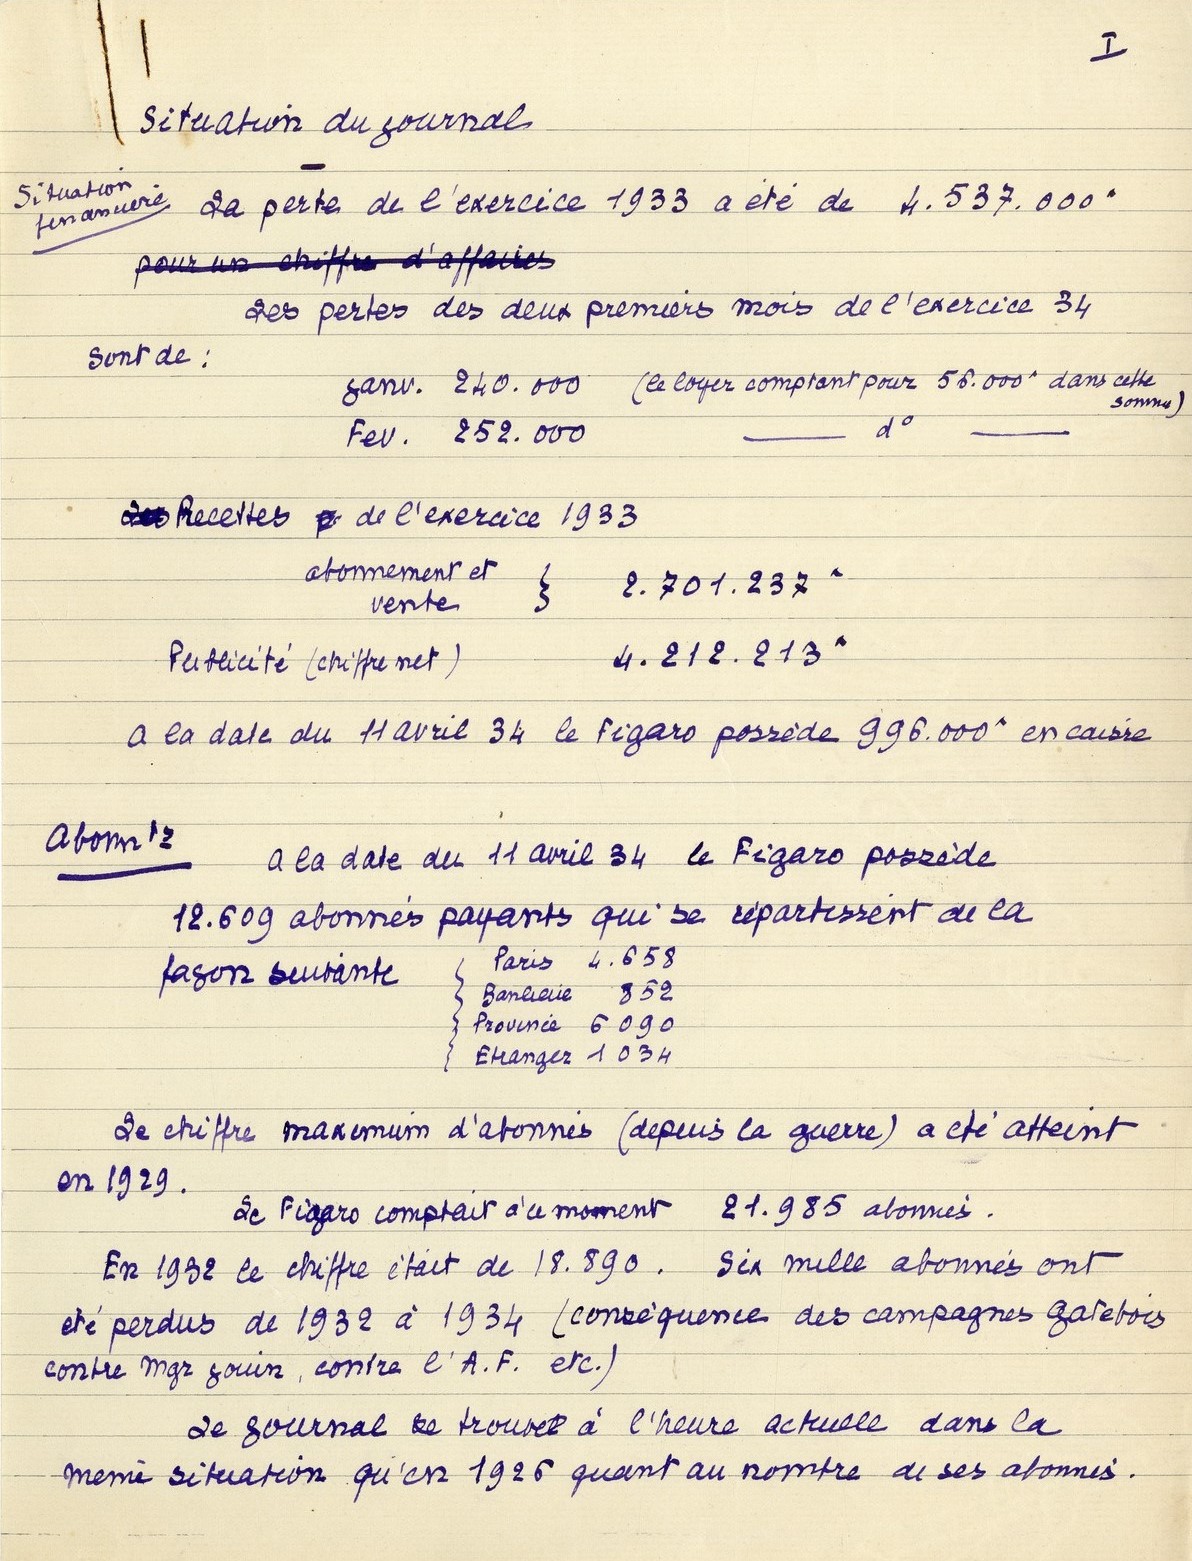 I
Situation du journal
Situation
financière
La perte de l'exercice 1933 a été de 4.537.000^
pour un chiffre d'affaires
Les pertes des deux premiers mois de l'exercice 34
sont de :
Janv. 240.000 (le loyer comptant pour 56.000^ dans cette
somme)
Fev. 252.000 —— d° ——
Les Recettes p de l'exercice 1933
abonnement et
vente } 2.701.237^
Publicité (chiffre net) 4.212.213^
A la date du 11 avril 34 le Figaro possède 996.000^ en caisse
Abonn^ts
A la date du 11 avril 34 le Figaro possède
12.609 abonnés payants qui se répartissent de la
façon suivante
{ Paris 4.658
{ Banlieue 852
{ Province 6 090
{ Etranger 1 034
Le chiffre maximum d'abonnés (depuis la guerre) a été atteint
en 1929.
Le Figaro comptait à ce moment 21.985 abonnés.
En 1932 le chiffre était de 18.890. Six mille abonnés ont
été perdus de 1932 à 1934 (conséquence des campagnes Gatebois
contre Mgr Jouin, contre l'A.F. etc.)
Le journal se trouve à l'heure actuelle dans la
même situation qu'en 1926 quant au nombre de ses abonnés.